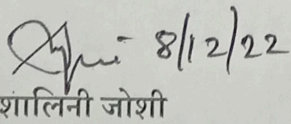 8/12/22
शालिनी जोशी